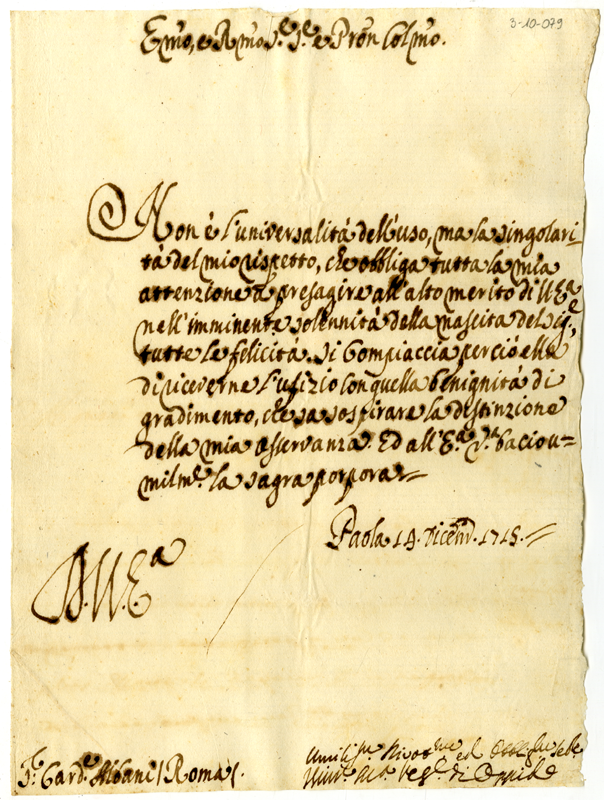 3-10-079
Emo, e Rmo Sre. Sre. e Pron Colmo.
Non è l'universalità dell'uso, ma la singolari-
tà del mio rispetto, che obbliga tutta la mia
attenzione a presagire all'alto merito di V.Ea.
nell'imminente solennità della nascita del Sige.,
tutte le felicità. Si Compiaccia perciò ella
di riceverne l'ufizio con quella benignità di
gradimento, che sa sospirare la distinzione
della mia osservanza. Ed all'Ea. Va. bacio u=
milme. la sagra porpora=
Paola 14. Dicemb. 1715.=
D.V.Ea
Sr. Card.e Albani / Roma /.
ed
di